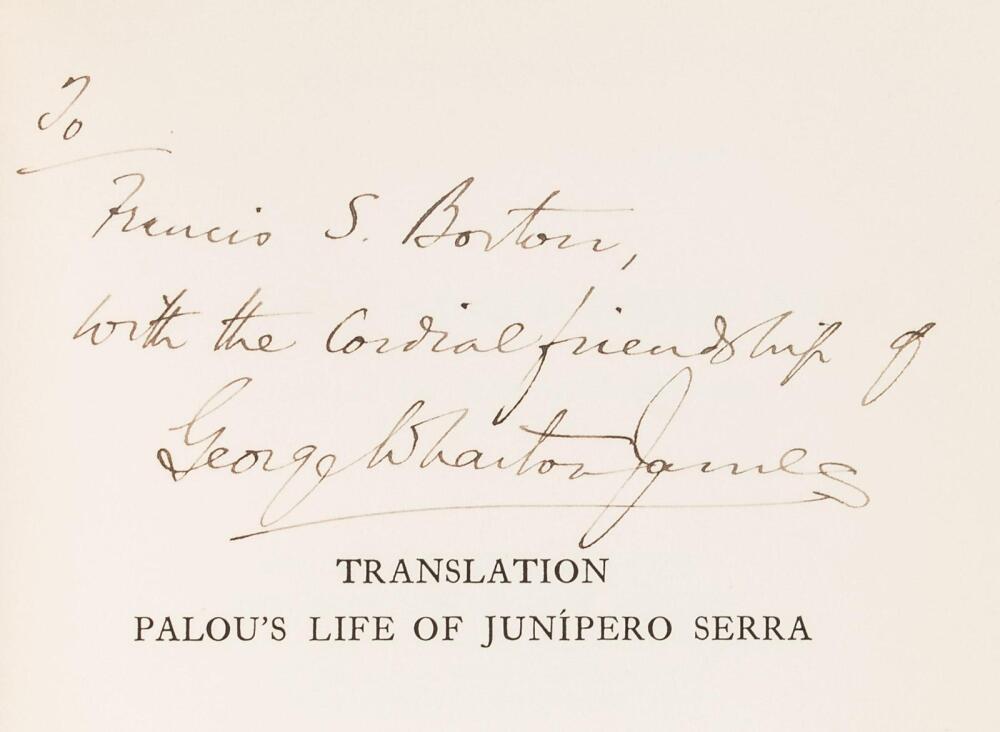 To
Francis S. Borton,
with the cordial friendship of
George Wharton James
TRANSLATION
PALOU'S LIFE OF JUNÍPERO SERRA